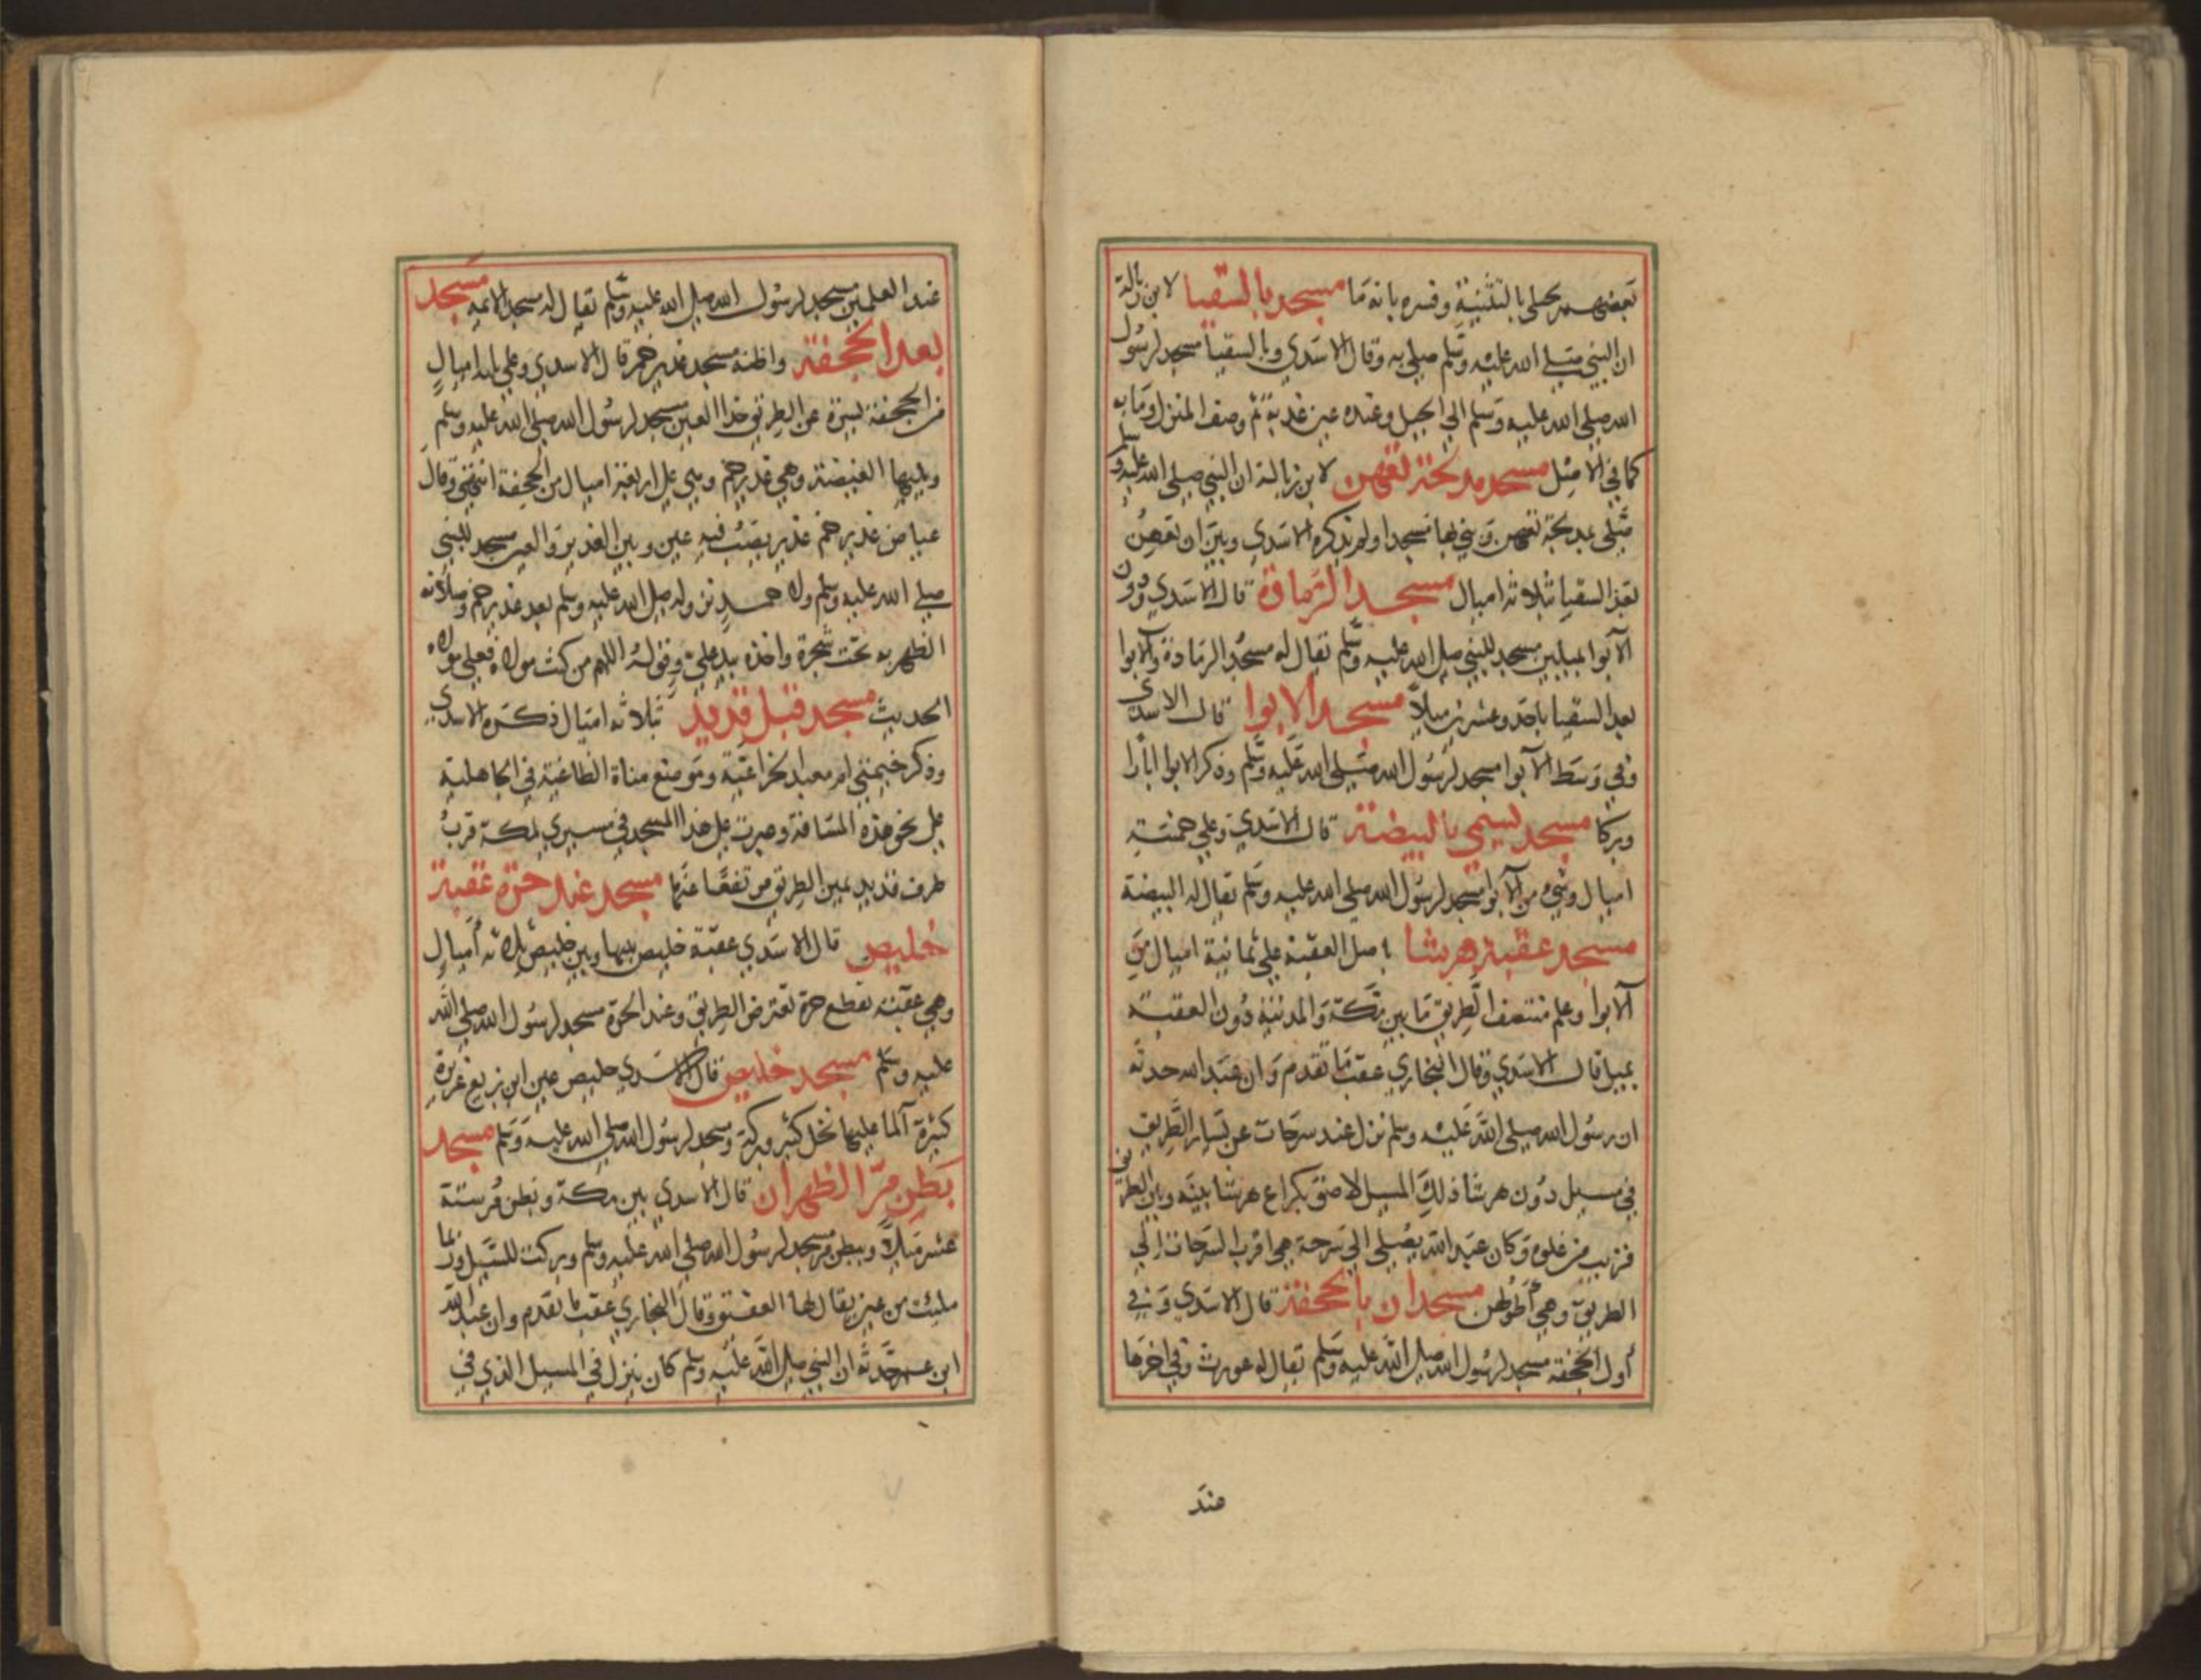 بعضهم لحيى بالتثنية وفسره بانه ما مسجد بالسقيا لابن زبالة
ان النبي صلى الله عليه وسلم صلى به وقال الاسدي وبالسقيا مسجد لرسول
الله صلى الله عليه وسلم الى الجبل وعنده عين عذبة ثم وصف المنزل وما به
كما في الاصل مسجد مدلجة تعهن لابن زبالة ان النبي صلى الله عليه وسلم
صلى بمدلجة تعهن وبنى بها مسجدا ولم يذكره الاسدي وبين ان تعهن
بعد السقيا بثلاثة اميال مسجد الرمادة قال الاسدي ودون
الابوا بميلين مسجد للنبي صلى الله عليه وسلم يقال له مسجد الرمادة والابوا
بعد السقيا باحد وعشرين ميلا مسجد الابوا قال الاسدي
وفي وسط الابوا مسجد لرسول الله صلى الله عليه وسلم وذكر لابوا ابارا
وبركا مسجد يسمى بالبيضة قال الاسدي وعلى خمسة
اميال وشيء من الابوا مسجد لرسول الله صلى الله عليه وسلم يقال له البيضة
مسجد عقبة هرشا باصل العقبة على ثمانية اميال من
الابوا وعلم منتصف الطريق ما بين مكة والمدينة دون العقبة
بميل قال الاسدي وقال البخاري عقب ما تقدم وان عبد الله حدثه
ان رسول الله صلى الله عليه وسلم نزل عند سرحات عن يسار الطريق
في مسيل دون هرشا ذلك المسيل لاصق بكراع هرشا بينه وبين الطريق
قريب من غلوة وكان عبد الله يصلي الى سرحة هي اقرب السرحات الى
الطريق وهي اطولهن مسجدان بالجحفة قال الاسدي وفي
اول الجحفة مسجد لرسول الله صلى الله عليه وسلم يقال له عورث وفي اخرها
عند
عند العلمين مسجد لرسول الله صلى الله عليه وسلم يقال له مسجد الائمة مسجد
بعد الجحفة واظنه مسجد غدير خم قال الاسدي وعلى ثلاثة اميال
من الجحفة يسرة عن الطريق حذا العين مسجد لرسول الله صلى الله عليه وسلم
ويليها الغيضة وهي غدير خم وهي على اربعة اميال من الجحفة انتهى وقال
عياض غدير خم غدير يصب فيه عين وبين الغدير والعين مسجد للنبي
صلى الله عليه وسلم ولاحمد نزوله صلى الله عليه وسلم بعد غدير خم وصلاته
الظهر به تحت شجرة واخذه بيد علي وقوله اللهم من كنت مولاه فعلي مولاه
الحديث مسجد قبل قديد بثلاثة اميال ذكره الاسدي
وذكر خيمتي ام معبد الخزاعية وموضع مناة الطاغية في الجاهلية
على نحو هذه المسافة ومررت على هذا المسجد في مسيري لمكة قرب
طرف قديد يمين الطريق مرتفعا عنها مسجد عند حرة عقبة
خليص قال الاسدي عقبة خليص بينها وبين خليص ثلاثة اميال
وهي عقبة تقطع حرة تعترض الطريق وعند الحرة مسجد لرسول الله صلى الله
عليه وسلم مسجد خليص قال الاسدي خليص عين ابن بزيع غزيرة
كثيرة الما عليها نخل كثير وبركة ومسجد لرسول الله صلى الله عليه وسلم مسجد
بطن مر الظهران قال الاسدي بين مكة وبطن مر ستة
عشر ميلا وببطن مر مسجد لرسول الله صلى الله عليه وسلم وبركت للسيل وربما
ملئت من عين يقال لها العقيق وقال البخاري عقب ما تقدم وان عبد الله
ابن عمر حدثه ان النبي صلى الله عليه وسلم كان ينزل في المسيل الذي في